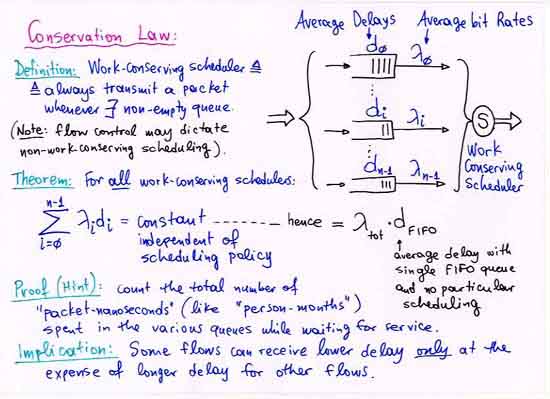 Conservation Law:
Average Delays
Average bit Rates
Definition: Work-Conserving scheduler ≜
≜ always transmit a packet
whenever ∃ non-empty queue.
(Note: flow control may dictate
non-work-conserving scheduling).
dø λø
di λi
dn-1 λn-1
S
Work
Conserving
Scheduler
Theorem: For all work-conserving schedulers:
n-1
∑ λidi = constant ------- hence = λtot · dFIFO
i=ø
independent of
scheduling policy
average delay with
single FIFO queue
and no particular
scheduling
Proof (Hint): count the total number of
"packet-nanoseconds" (like "person-months")
spent in the various queues while waiting for service.
Implication: Some flows can receive lower delay only at the
expense of longer delay for other flows.